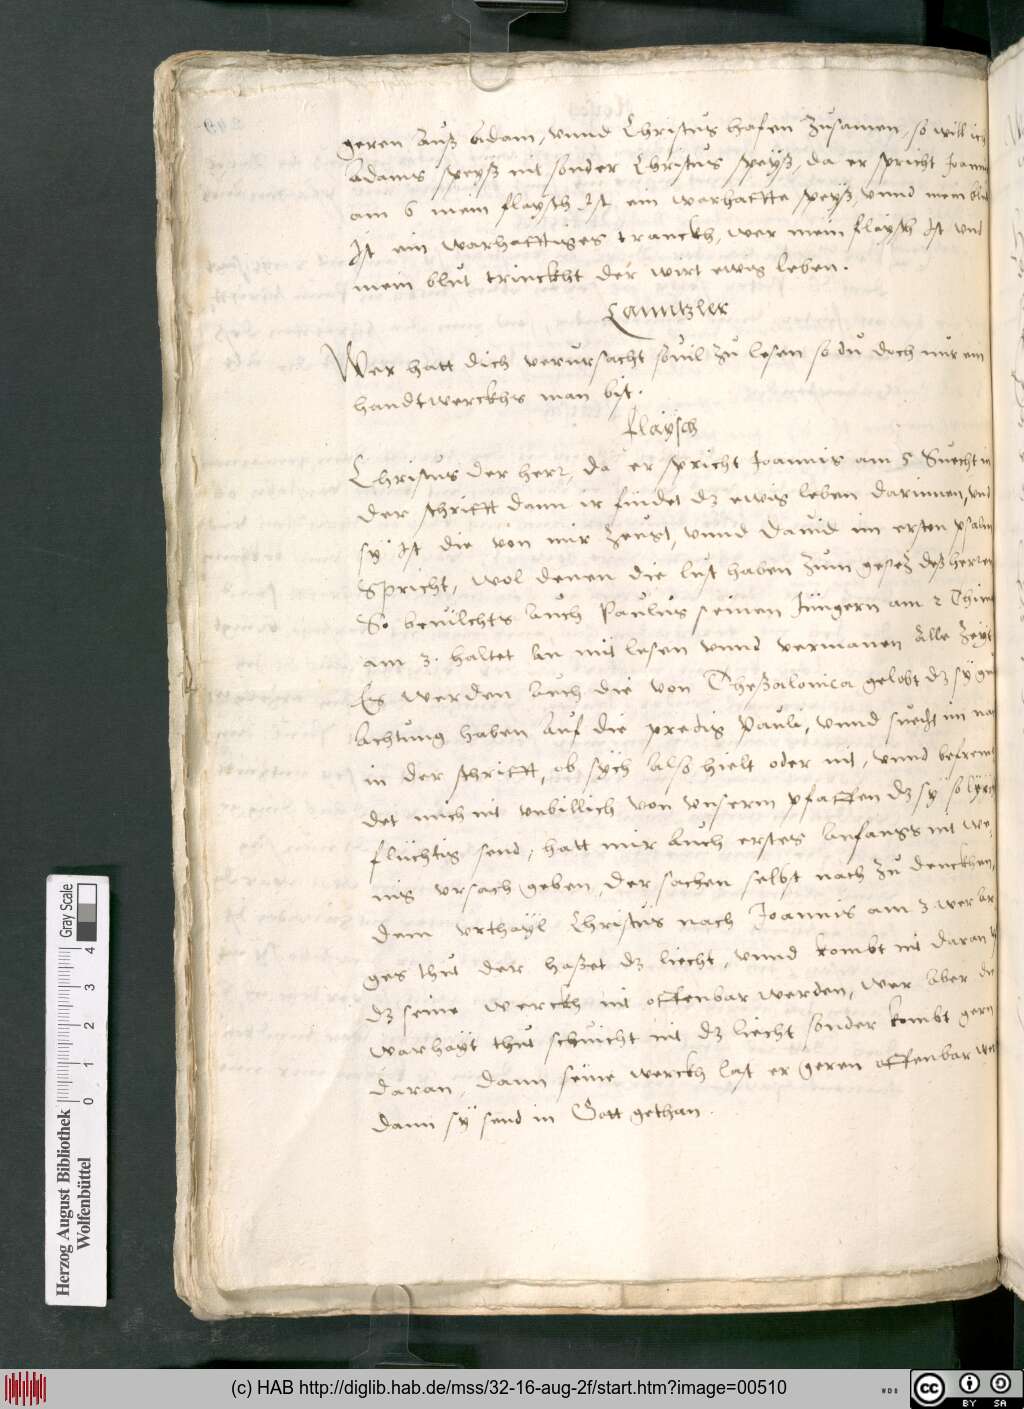 geren auß Adam, vnnd Christus hafen zusamen, so will ich
Adams speyß nit sonder Christus speyß, da er spricht Joannis
am 6 mein flaysch Ist ein warhaffte speyß, vnnd mein blut
Ist ein warhafftiges tranckh, wer mein flaysch Ist vnd
mein blut trinckht der wirt ewig leben.
Canntzler
Wer hatt dich verursacht souil zu lesen so du doch nur ein
handtwerckhs man bist.
flaysch
Christus der herr, da er spricht Joannis am 5 Suecht in
der schrifft dann ir findet dz ewig leben darinnen, vnd
sy Ist die von mir zeugt, vnnd Dauid im ersten psalm
Spricht, wol denen die lust haben zum gesez deß herren
So beuilchts auch Paulus seinen Jüngern am 2 Thimo
am 3. haltet an mit lesen vnnd vermanen alle zeyt
Es werden auch die von Theßalonica gelobt dz sy
achtung haben auf die predig Pauli, vnnd suecht im
in der schrifft, ob sych also hielt oder nit, vnnd befrem
det mich nit vnbillich von vnserm pfaffen dz sy so
flüchtig send, hatt mir auch erstes anfangs nit we,
nig vrsach geben, der sachen selbst nach zu denckhen,
dem vrthayl Christus nach Joannis am 3 wer ar
ges thut der haßet dz liecht, vnnd kombt nit daran
dz seine werckh nit offenbar werden, wer aber die
warhayt thut scheicht nit dz liecht sonder kombt gern
daran, dann seine werckh last er geren offenbar wer
dann sy send in Gott gethan.
Herzog August Bibliothek
Wolfenbüttel
0 1 2 3 4
Gray Scale
(c) HAB http://diglib.hab.de/mss/32-16-aug-2f/start.htm?image=00510
WDB
CC BY SA